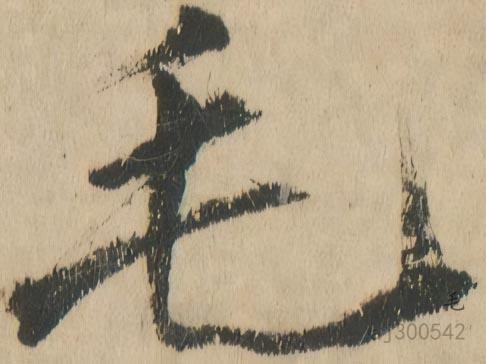 毛
毛
j300542